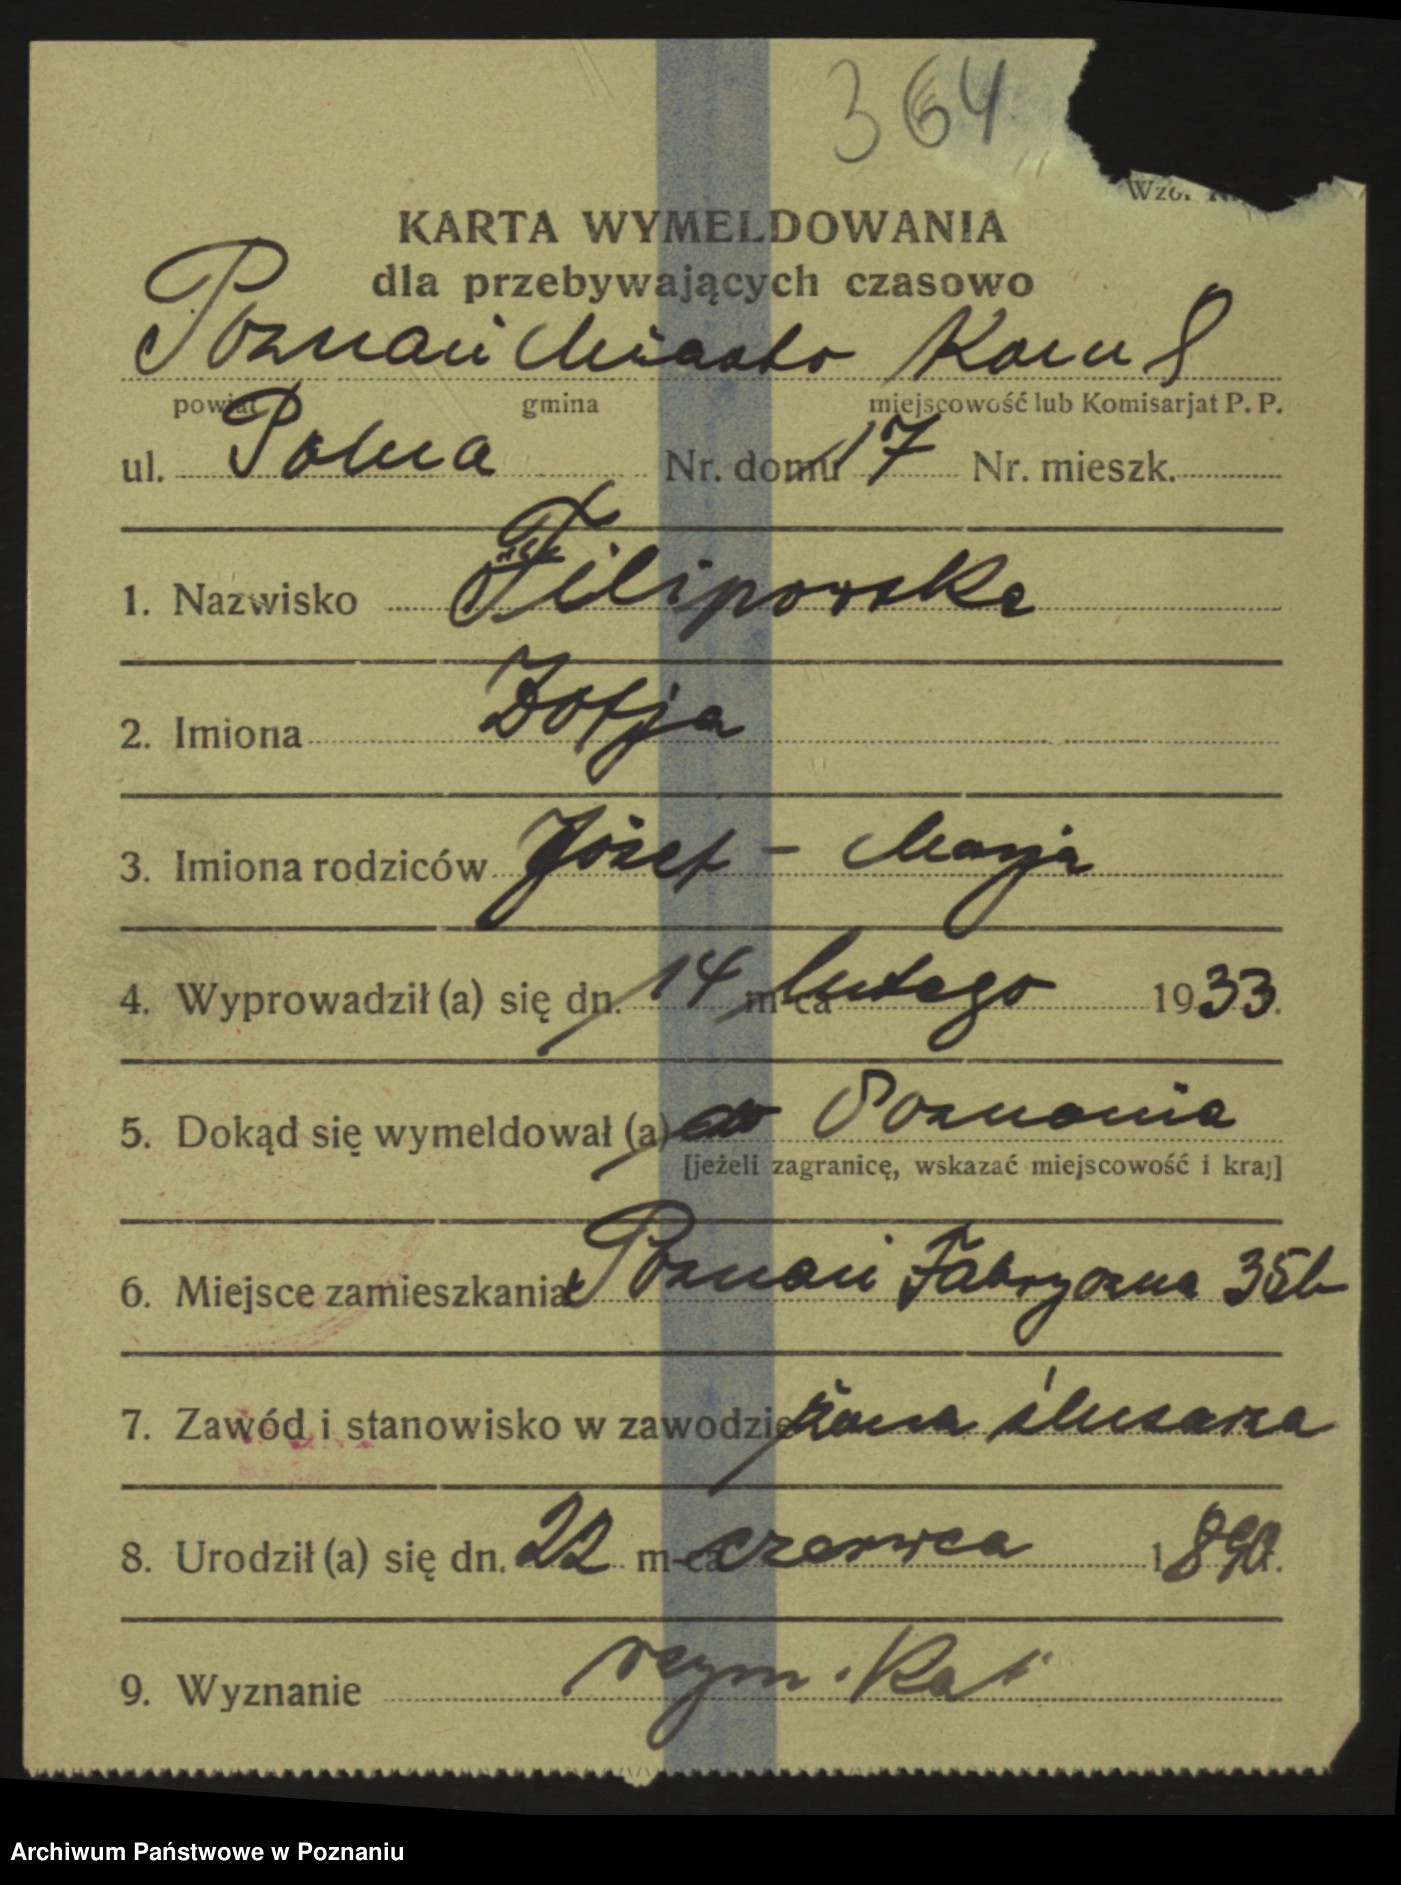 364
Wzór
KARTA WYMELDOWANIA
dla przebywających czasowo
Poznań Miasto Kom 8
powiat gmina miejscowość lub Komisarjat P. P.
ul. Polna Nr. domu 17 Nr. mieszk.
1. Nazwisko Filipowska
2. Imiona Zofja
3. Imiona rodziców Józef - Marja
4. Wyprowadził (a) się dn. 14 m-ca lutego 1933.
5. Dokąd się wymeldował (a) do Poznania
[jeżeli zagranicę, wskazać miejscowość i kraj]
6. Miejsce zamieszkania Poznań Fabryczna 35b
7. Zawód i stanowisko w zawodzie żona ślusarza
8. Urodził (a) się dn. 22 m-ca czerwca 1890.
9. Wyznanie rzym. Kat
Archiwum Państwowe w Poznaniu